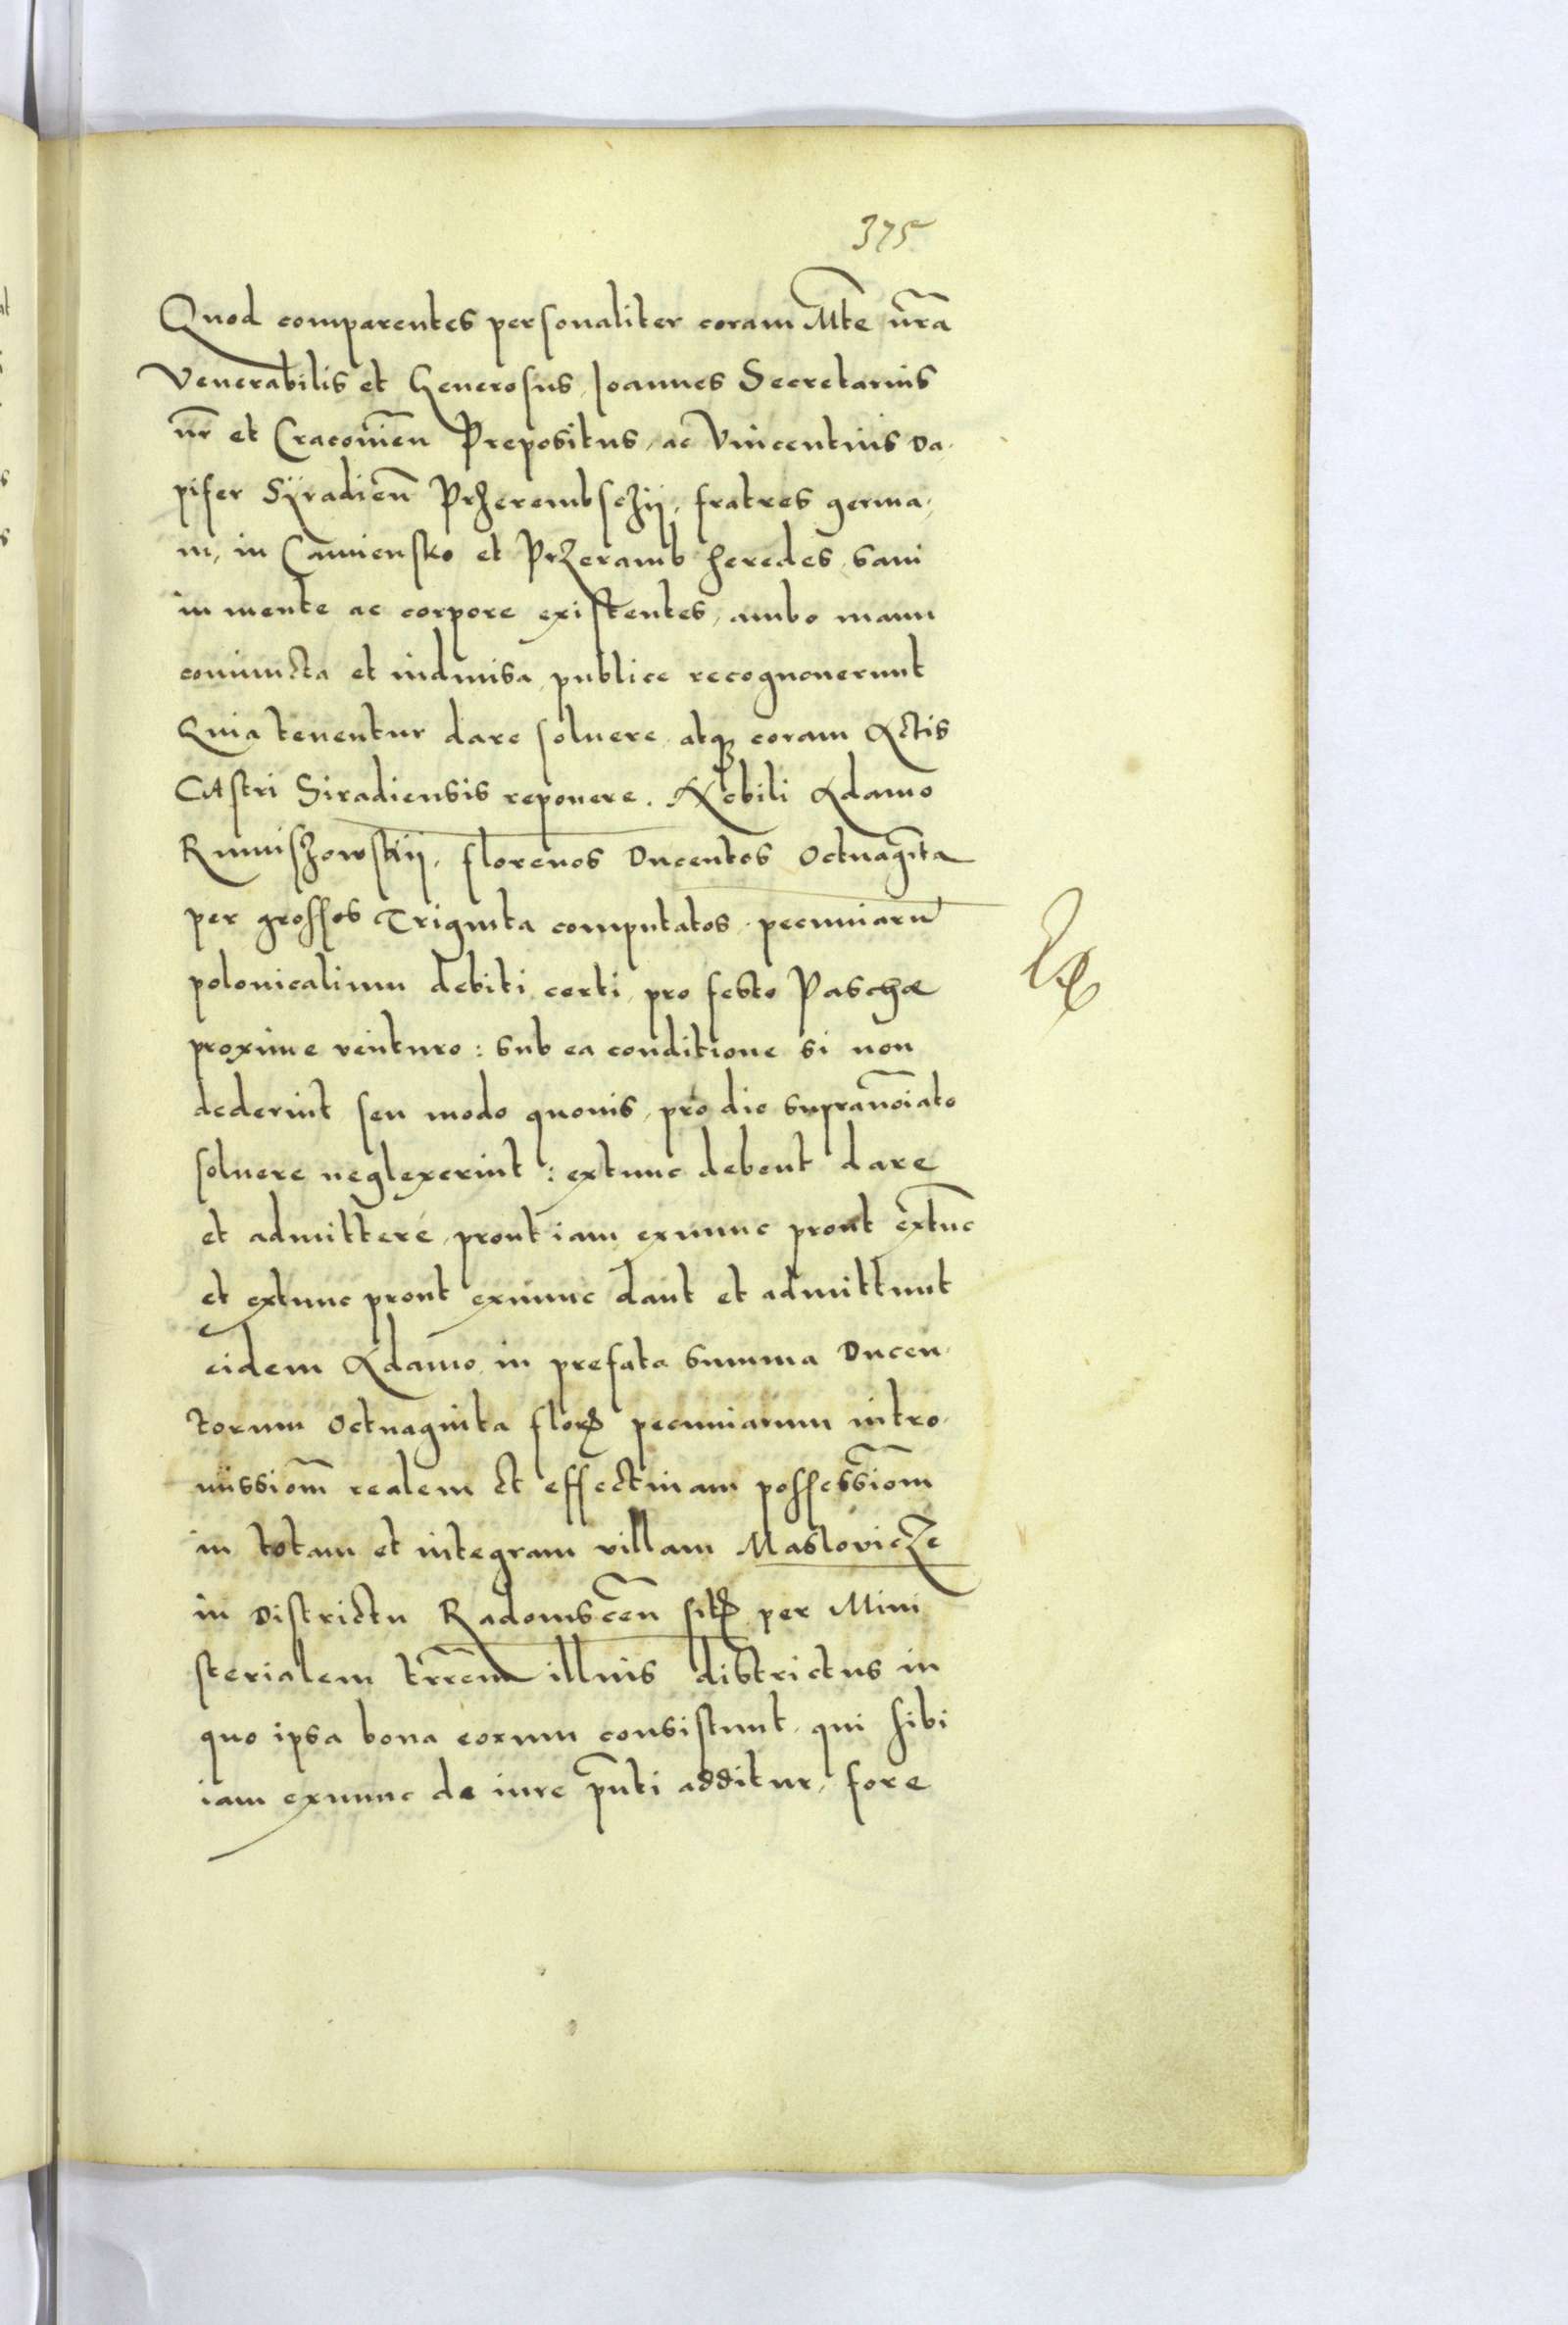 375
Quod comparentes personaliter coram Mte nra
Venerabilis et Generosus, Joannes Secretarius
nr et Cracouien Prepositus, ac Vincentius Da-
pifer Syradien Przerembschy, fratres germa-
ni, in Camiensko et Przeramb heredes, sani
in mente ac corpore existentes, ambo manu
coniuncta et indiuisa, publice recognouerunt
Quia tenentur dare soluere, atq coram Actis
CAstri Siradiensis reponere. Nobili Adamo
Rzuiszowsky, florenos Ducentos Octuaginta
per grossos Triginta computatos, pecuniaru
polonicalium debiti certi, pro festo Paschæ
proxime venturo: sub ea conditione si non
dederint seu modo quouis, pro die supranoiato
soluere neglexerint: extunc debent dare
et admittere, prout iam exnunc prout extunc
et extunc prout exnunc dant et admittunt
eidem Adamo, in prefata summa Ducen-
torum Octuaginta flor pecuniarum intro-
missiom realem et effectiuam possessiom
in totam et integram villam Maslovicze
in Districtu Radomscen sit per Mini
sterialem trrem illius districtus in
quo ipsa bona eorum consistunt, qui sibi
iam exnunc de iure pnti additur, fore